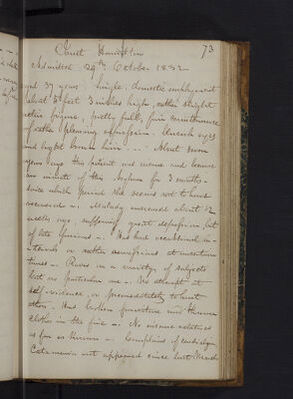 73
Janet Hamilton
Admitted 29th October 1832
aged 37 years. Single, domestic employment
about 5 feet 3 inches high, rather straight
figure, pretty full, fair countenance
of rather pleasing expression. Bluish eyes
and light brown hair. About seven
years ago this patient was insane and became
an inmate of this Asylum for 3 months
since which period she seems not to have
recovered. Malady increased about
weeks ago suffering great depression
of late furious. Has had occasional in
or rather at uncertain
times. Raves on a variety of subjects
but no particular one. No attempt at
self violence, or premeditated to hurt
others. Has broken furniture and thrown
clothes in the fire. No insane relatives
as far as known. Complains of
Catamenia not appeared since last March